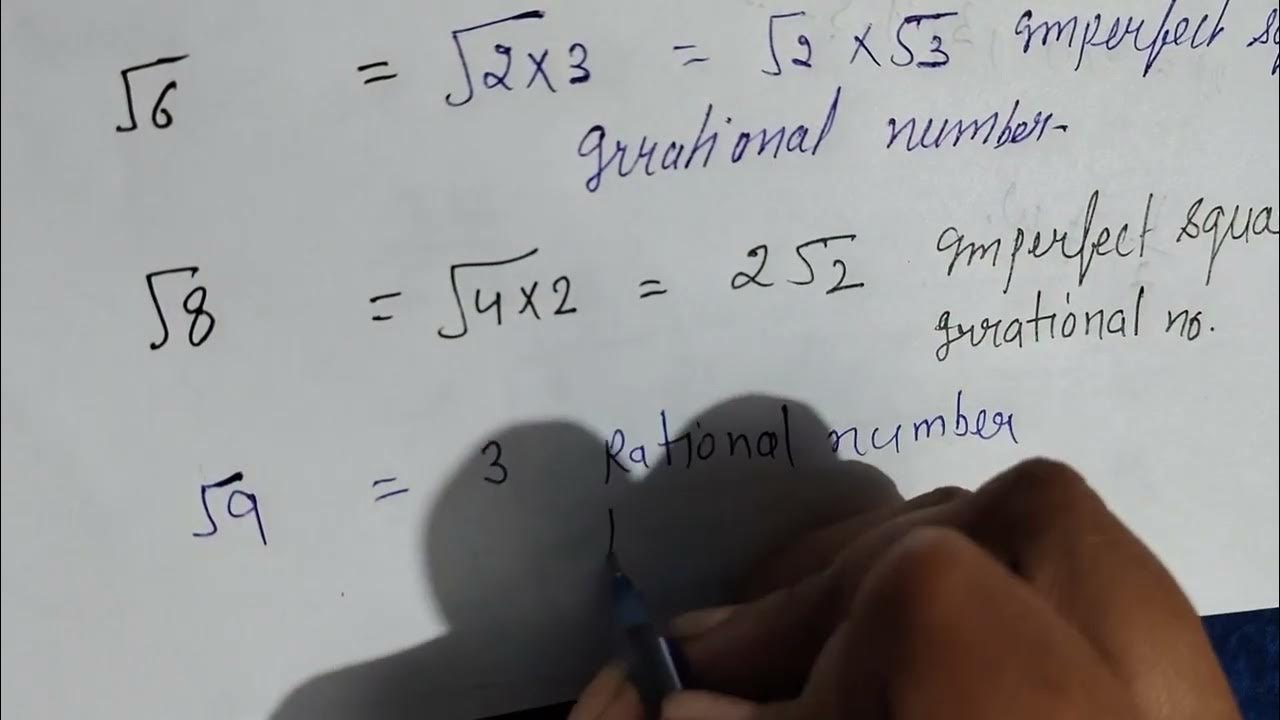 √6 = √2×3 = √2 × √3 Imperfect sq
Irrational number
√8 = √4×2 = 2√2 Imperfect squa
Irrational no.
√9 = 3 Rational number